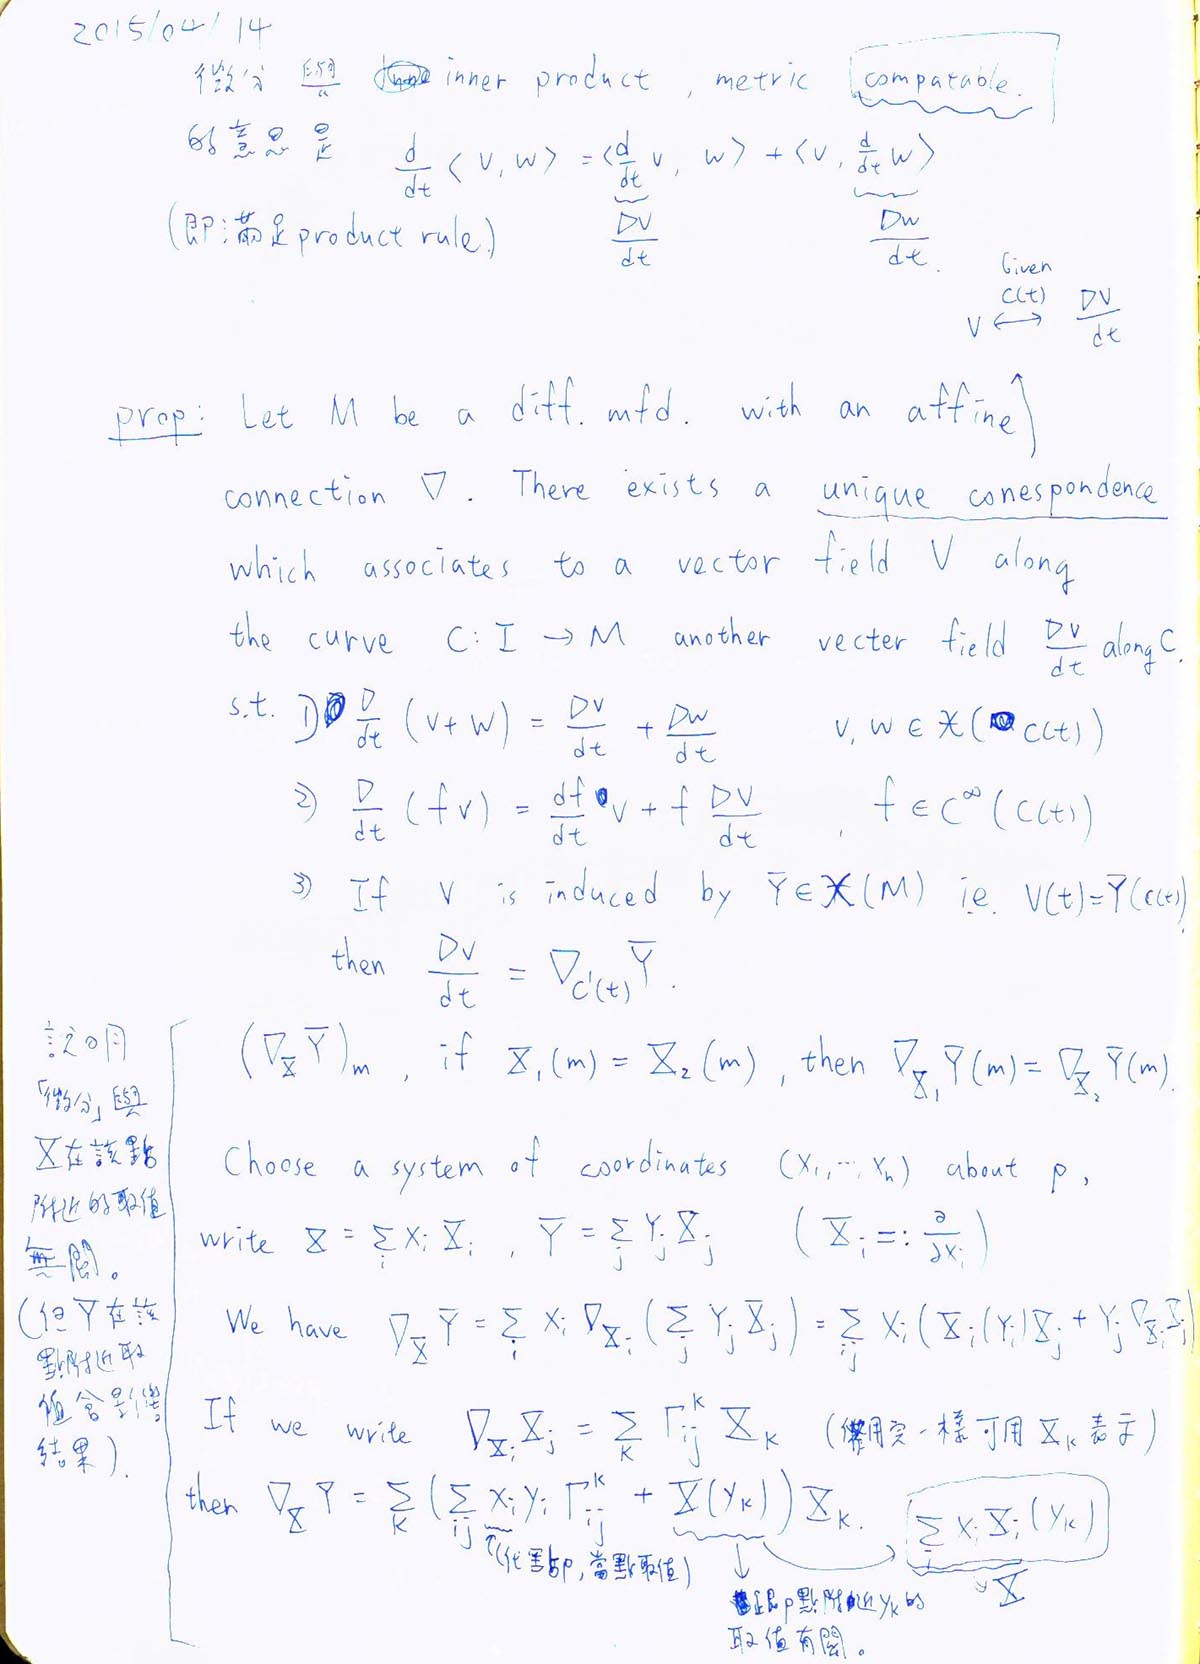 2015/04/14
微分與 inner product, metric compatable.
的意思是 d/dt <V, W> = <d/dt V, W> + <V, d/dt W>
(即:滿足 product rule.) DV/dt DW/dt.
Given
C(t)
V ↔ DV/dt
prop: Let M be a diff. mfd. with an affine
connection ∇. There exists a unique conespondence
which associates to a vector field V along
the curve C: I → M another vecter field DV/dt along C.
s.t. 1) D/dt (V+W) = DV/dt + DW/dt V, W ∈ X(C(t))
2) D/dt (fV) = df/dt V + f DV/dt, f ∈ C^∞(C(t))
3) If V is induced by Y ∈ X(M) i.e. V(t)=Y(C(t))
then DV/dt = ∇_{C'(t)} Y.
(∇_X Y)_m, if X_1(m) = X_2(m), then ∇_{X_1} Y(m) = ∇_{X_2} Y(m).
Choose a system of coordinates (x_1, ..., x_n) about p,
write X = Σ_i x_i X_i, Y = Σ_j y_j X_j (X_i =: ∂/∂x_i)
We have ∇_X Y = Σ_i x_i ∇_{X_i} (Σ_j y_j X_j) = Σ_{ij} x_i (X_i(y_j) X_j + y_j ∇_{X_i} X_j)
If we write ∇_{X_i} X_j = Σ_k Γ_{ij}^k X_k (用完一樣可用 X_k 表示)
then ∇_X Y = Σ_k (Σ_{ij} x_i y_j Γ_{ij}^k + X(y_k)) X_k. Σ_i x_i X_i (y_k)
(代點p,當點取值) X
跟p點附近y_k的
取值有關。
說明
「微分」與
X在該點
附近的取值
無關。
(但Y在該
點附近取
值會影響
結果).